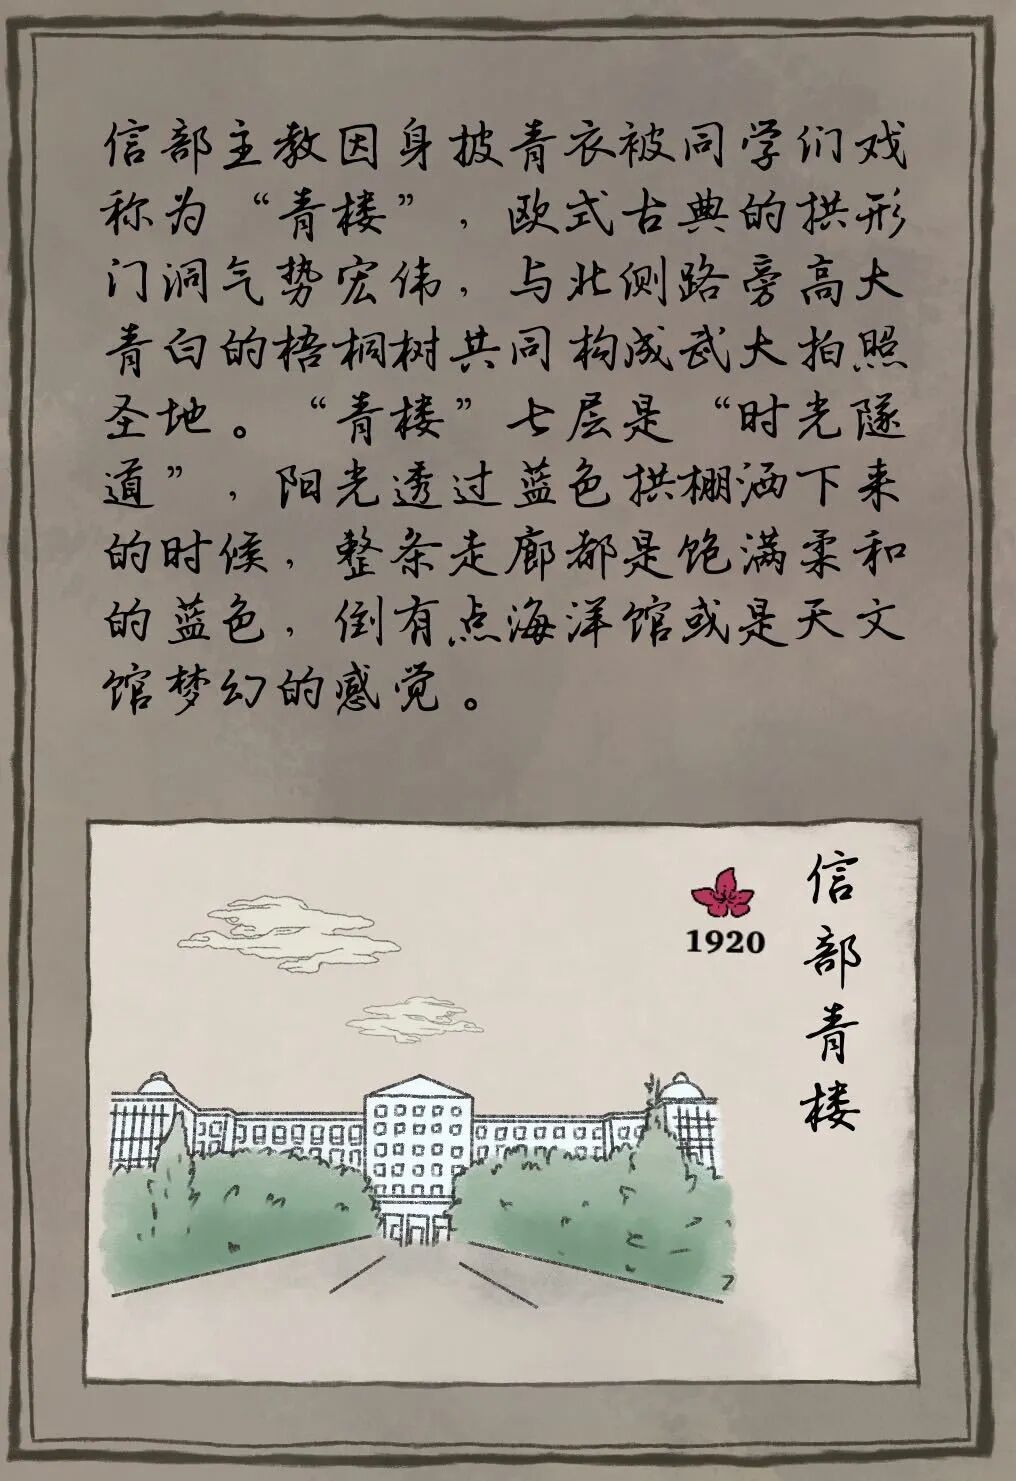 信部主教因身披青衣被同学们戏
称为“青楼”，欧式古典的拱形
门洞气势宏伟，与北侧路旁高大
青白的梧桐树共同构成武大拍照
圣地。“青楼”七层是“时光隧
道”，阳光透过蓝色拱棚洒下来
的时候，整条走廊都是饱满柔和
的蓝色，倒有点海洋馆或是天文
馆梦幻的感觉。
1920
信部青楼